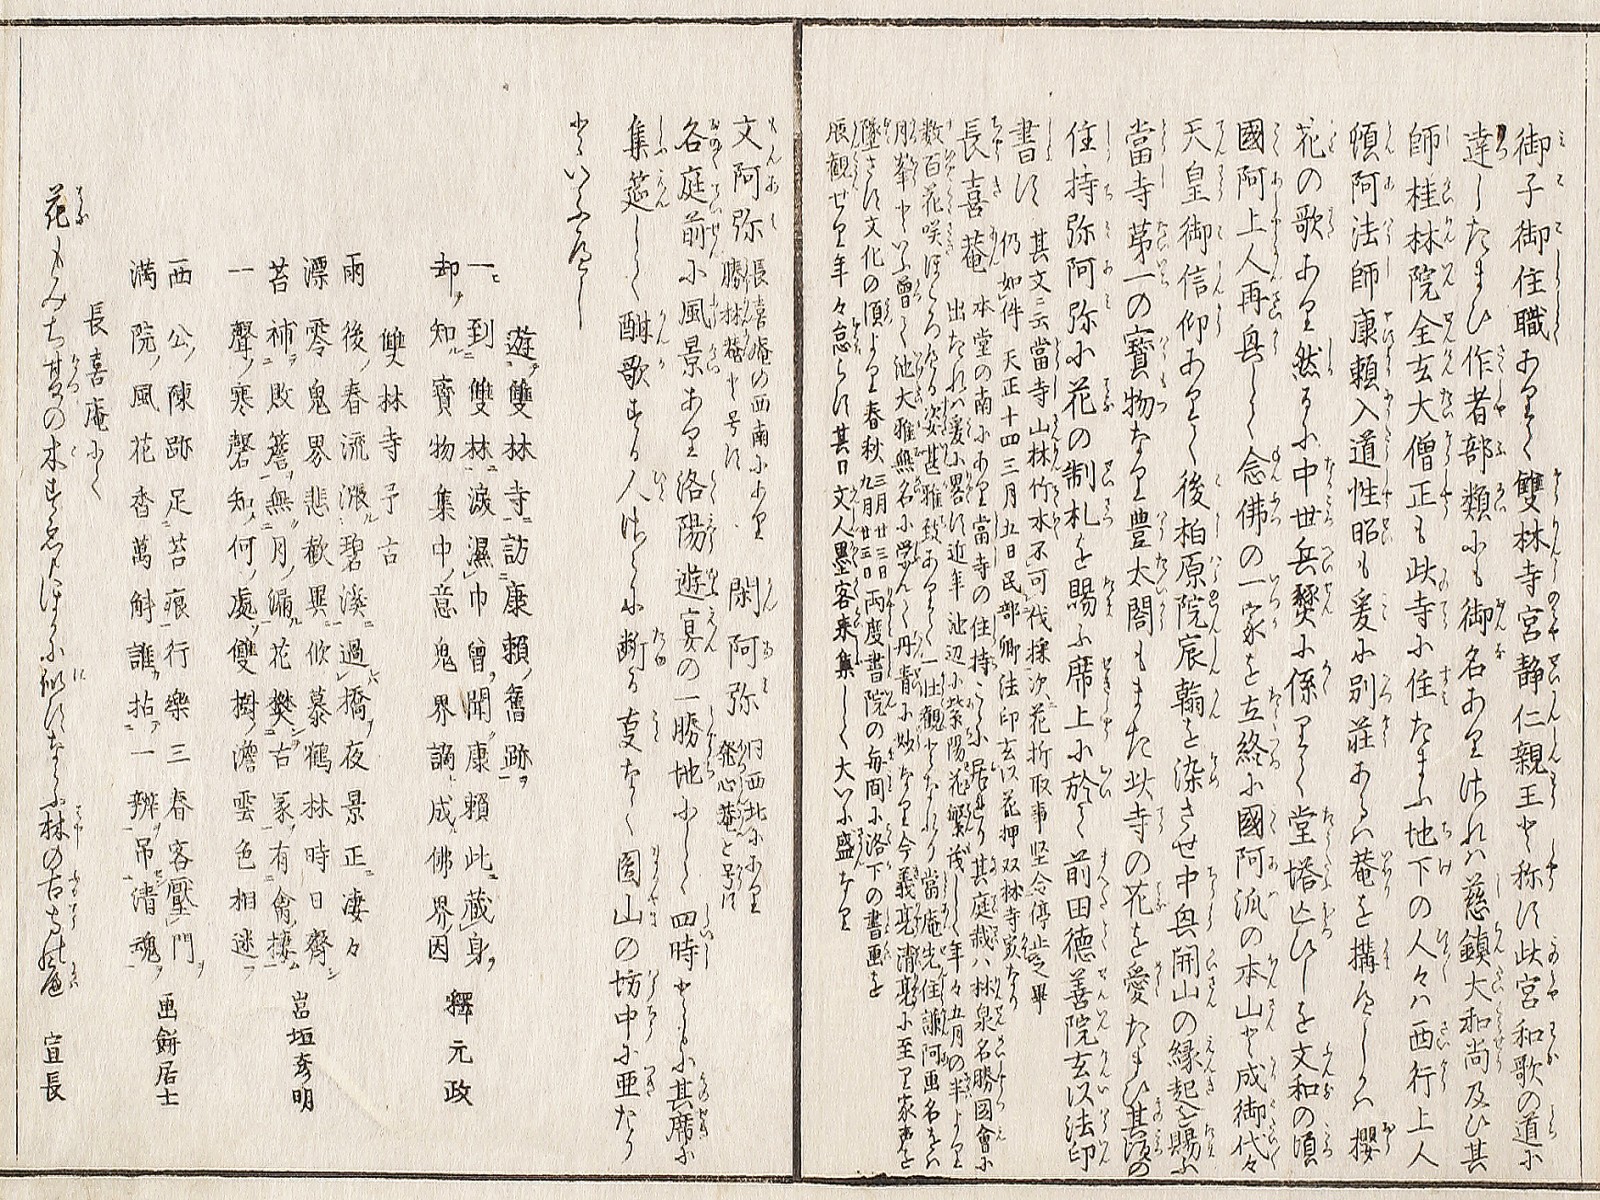 御子御住職ありて雙林寺宮静仁親王と称す此宮和歌の道に
達したまひ作者部類にも御名あり洪れハ慈鎮大和尚及ひ其
師桂林院全玄大僧正も此寺に住たまふ地下の人々ハ西行上人
頓阿法師康頼入道性昭も爰に別荘あるハ菴を搆へしかハ櫻
花の歌あり然るに中世兵燹に係りて堂塔亡ひしを文和の頃
國阿上人再興して念佛の一家を立終に國阿派の本山と成御代々
天皇御信仰ありて後柏原院宸翰を染させ中興開山の縁起を賜ふ
當寺第一の寳物なり豊太閤もまた此寺の花を愛たまひ其頃の
住持弥阿弥に花の制札を賜ふ席上に於て前田德善院玄以法印
書す 其文ニ云當寺山林竹木不可伐採次花折取事堅令停止之畢
仍如件 天正十四三月五日民部卿法印玄以花押双林寺寅なり
長喜菴 本堂の南にあり當寺の住持こゝに居せり其庭栽ハ林泉名勝図會に
出たれハ爰に畧す近年池辺に紫陽花繁茂して年々五月の半より
数百花咲ほころたる姿甚雅致ありて一壮觀となれり當庵先住謙阿画名をハ
月峯といふ曾て池大雅無名に学んて丹青に妙なり今義亮清亮に至り家声を
墜さす文化の頃より春秋 三月廿三日 九月廿三日 両度書院の毎間に洛下の書画を
展觀せり年々怠らす其日文人墨客来集して大いに盛なり
文阿弥 長喜庵の西南にあり 勝林菴と号す 閑阿弥 同西北にあり 発心菴と号す
各庭前に風景あり洛陽遊宴の一勝地にして四時ともに其席に
集筵して酣歌する人つねに断る支なく圓山の坊中に亜たり
といふへし
遊雙林寺訪康賴舊跡
一到雙林淚濕巾曾聞康賴此藏身
却知寳物集中意鬼界謫成佛界因 釋元政
雙林寺予古
雨後春流漲碧溪過橋夜景正凄々
漂零鬼界悲歓異倐慕鶴林時日齊
苔補敗簷無月漏花樊古冢有禽棲 岩垣彦明
一聲寒磬知何處雙樹澹雲色相迷
西公陳跡足苔痕行樂三春客壓門
満院風花香萬斛誰拈一瓣吊清魂 画餅居士
長喜庵にて
花もみち其の木すゑハほかに似すならふ林の古寺の庭 宣長